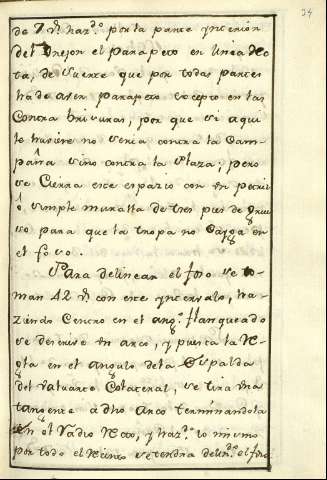 34
de 7 p.s haz.do por la parte ynterior
del Orejon el parapeto en linea Rec
ta, de suerte que por todas partes
ha de aver parapeto excepto en las
Contra brisuras, por que si aqui
le huviere no seria contra la Cam-
paña sino contra la Plaza; pero
se Cierra este espazio con un petril
ô simple muralla de tres pies de grue
so para que la tropa no Caiga en
el foso.
Para delinear el foso se to-
man 42 p.s con este yntervalo, ha-
ziendo Centro en el ang.o flanqueado
se descrive un arco, y puesta la Re
gla en el angulo dela Espalda
del valuarte Colateral, se tira una
tangente â dho Arco terminandola
en el Radio Recto, y haz.do lo mismo
por todo el Recinto se tendra delin.do el foso